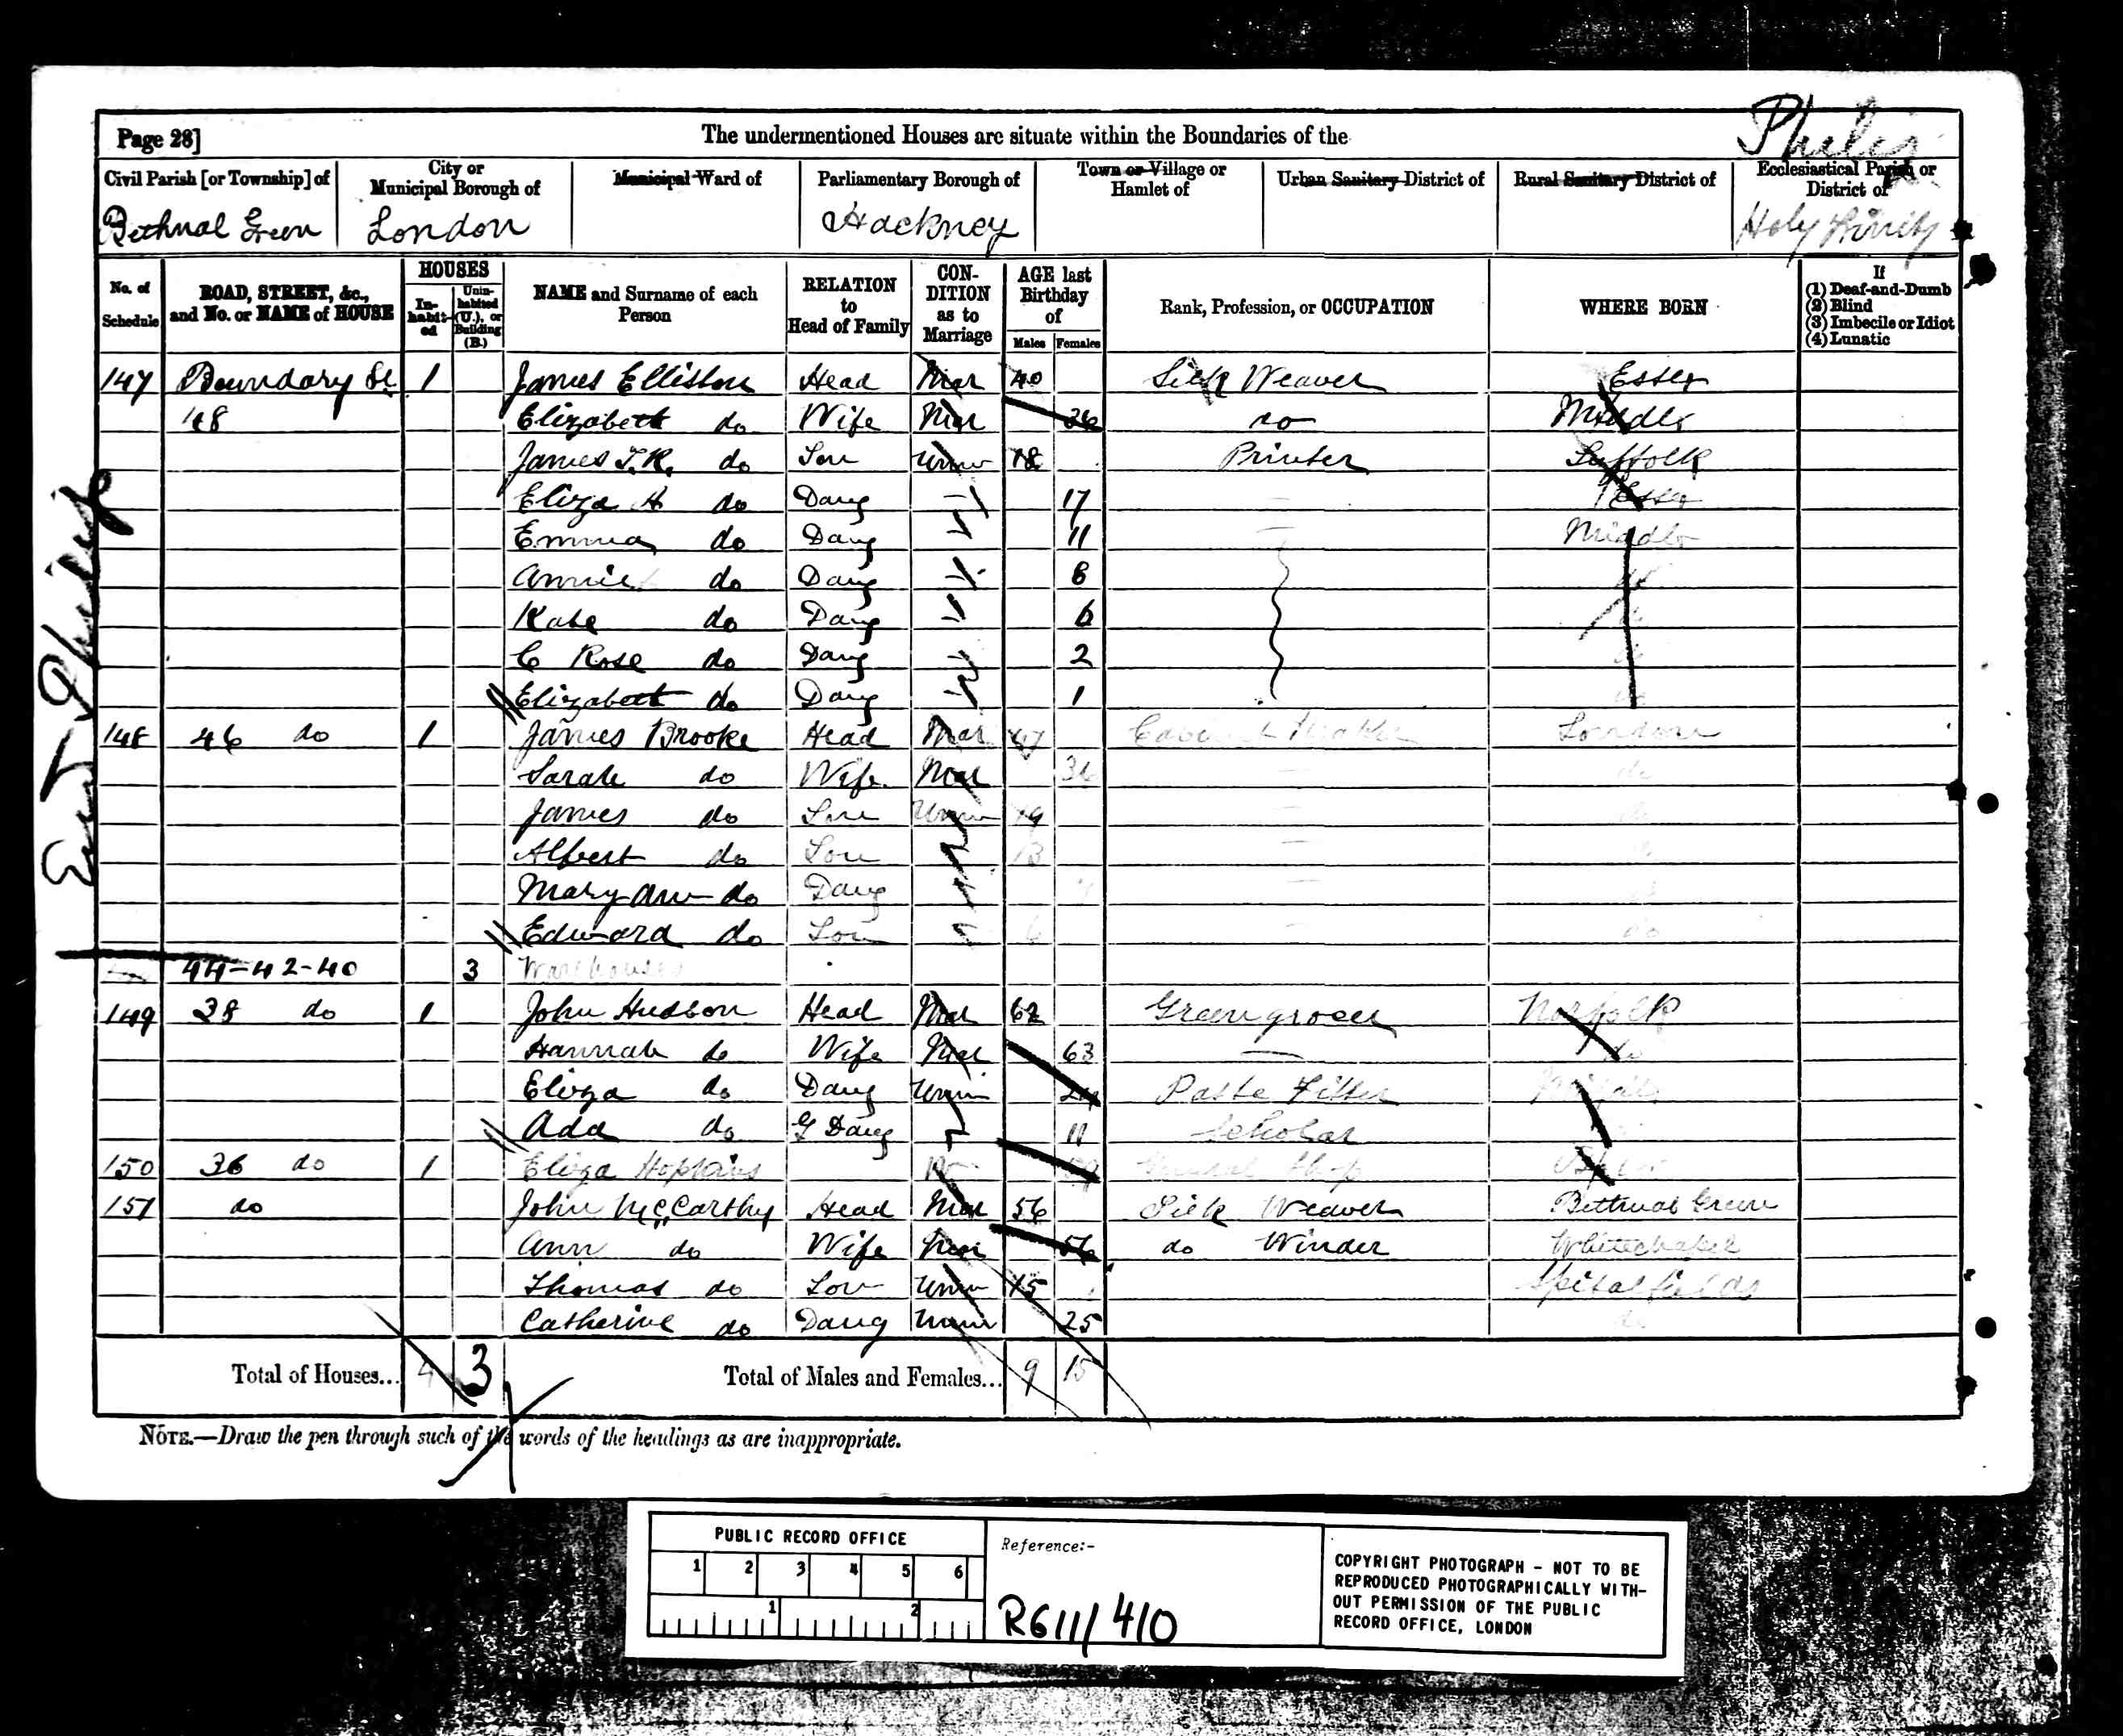 Page 28] The undermentioned Houses are situate within the Boundaries of the
Civil Parish [or Township] of City or Municipal Borough of Municipal Ward of Parliamentary Borough of Town or Village or Hamlet of Urban Sanitary District of Rural Sanitary District of Ecclesiastical Parish or District of
Bethnal Green London Hackney Holy Trinity
No. of Schedule ROAD, STREET, &c., and No. or NAME of HOUSE HOUSES Inhabited Uninhabited (U.), or Building (B.) NAME and Surname of each Person RELATION to Head of Family CONDITION as to Marriage AGE last Birthday of Males Females Rank, Profession, or OCCUPATION WHERE BORN If (1) Deaf-and-Dumb (2) Blind (3) Imbecile or Idiot (4) Lunatic
147 Boundary St 1 James Elliston Head Mar 40 Silk Weaver Essex
48 Elizabeth do Wife Mar 36 do Middlx
James T.R. do Son Unm 18 Printer Suffolk
Eliza H do Daug 17 Essex
Emma do Daug 11 Middlx
Annie do Daug 8 do
Kate do Daug 6 do
C Rose do Daug 2 do
Elizabeth do Daug 1 do
148 46 do 1 James Brooke Head Mar Cabinet Maker London
Sarah do Wife Mar 36 do
James do Son Unm 19 do
Albert do Son 13 do
Mary Ann do Daug do
Edward do Son 6 do
44-42-40 3 Warehouses
149 38 do 1 John Hudson Head Mar 62 Greengrocer Norfolk
Hannah do Wife Mar 63 do
Eliza do Daug Unm Paste Fitter
Ada do G Daug 11 Scholar
150 36 do 1 Eliza Hopkins General Shop
151 do John McCarthy Head Mar 56 Silk Weaver Bethnal Green
Ann do Wife Mar 56 do Winder Whitechapel
Thomas do Son Unm 15 Spitalfields
Catherine do Daug Unm 25 do
Total of Houses... 4 3 Total of Males and Females... 9 15
NOTE.—Draw the pen through such of the words of the headings as are inappropriate.
PUBLIC RECORD OFFICE
1 2 3 4 5 6
1 2
Reference:-
RG11/410
COPYRIGHT PHOTOGRAPH - NOT TO BE
REPRODUCED PHOTOGRAPHICALLY WITH-
OUT PERMISSION OF THE PUBLIC
RECORD OFFICE, LONDON